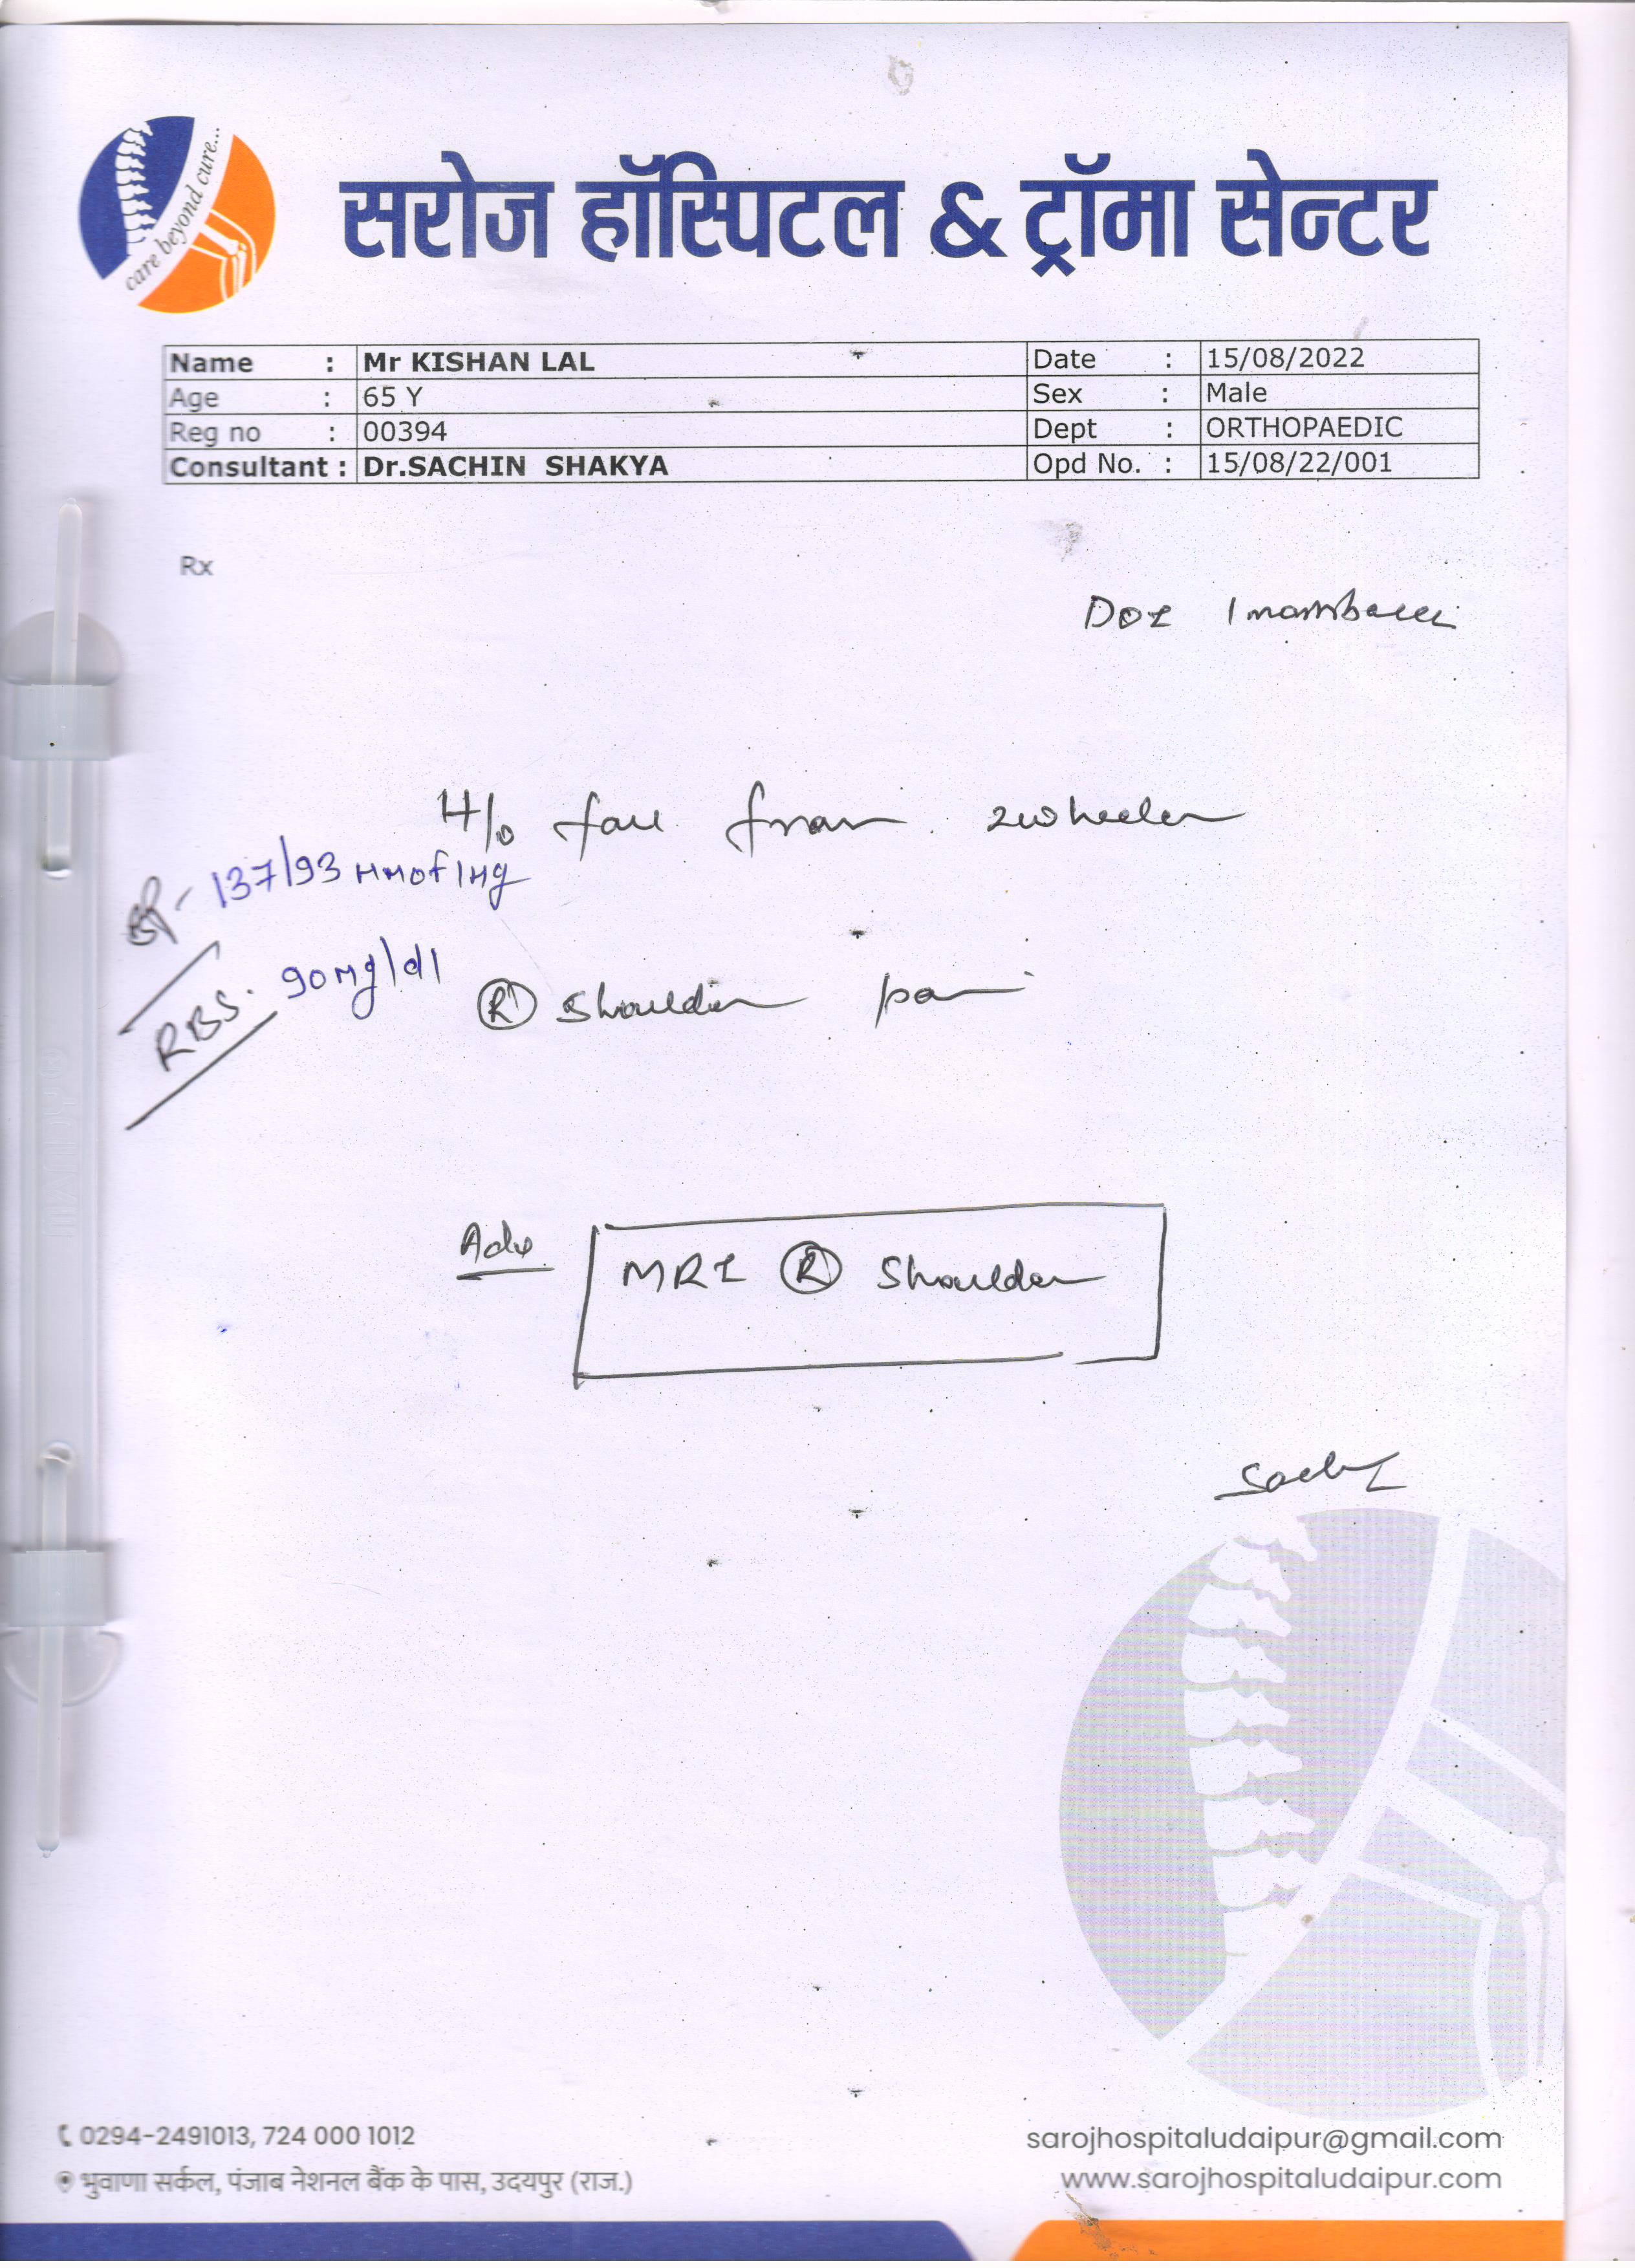 care beyond cure...
सरोज हॉस्पिटल & ट्रॉमा सेन्टर
Name : Mr KISHAN LAL Date : 15/08/2022
Age : 65 Y Sex : Male
Reg no : 00394 Dept : ORTHOPAEDIC
Consultant : Dr.SACHIN SHAKYA Opd No. : 15/08/22/001
Rx
DOI 1 month back
H/o fall from 2 wheeler
BP- 137/93 MMOF1Hg
RBS. 90Mg/dl
(R) Shoulder pain
Adv MRI (R) Shoulder
0294-2491013, 724 000 1012
sarojhospitaludaipur@gmail.com
भुवाणा सर्कल, पंजाब नेशनल बैंक के पास, उदयपुर (राज.)
www.sarojhospitaludaipur.com